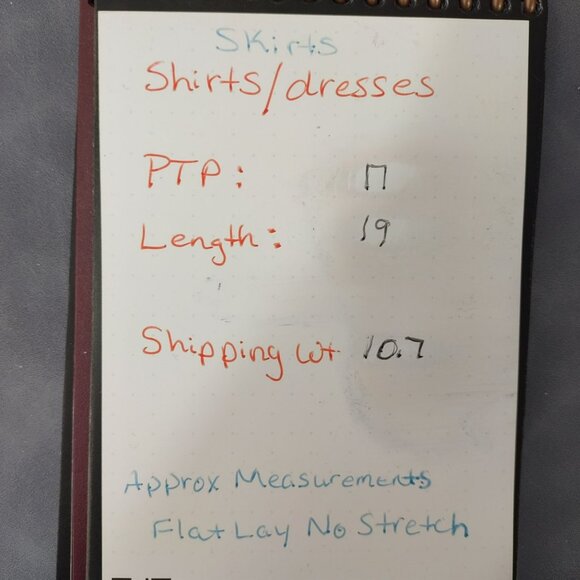 Skirts
Shirts/dresses
PTP: 17
Length: 19
Shipping wt 10.7
Approx Measurements
Flat Lay No Stretch